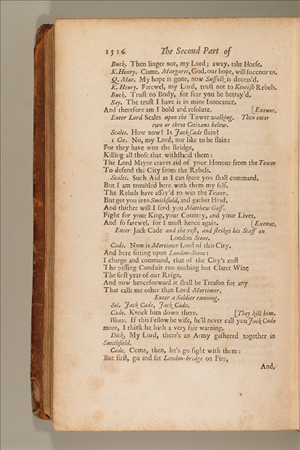 1516 The Second Part of
Buck. Then linger not, my Lord; away, take Horse.
K. Henry. Come, Margaret, God, our hope, will succour us.
Q. Mar. My hope is gone, now Suffolk is deceas'd.
K. Henry. Farewel, my Lord, trust not to Kentish Rebels.
Buck. Trust no Body, for fear you be betray'd.
Say. The trust I have is in mine Innocence,
And therefore am I bold and resolute. [Exeunt.
Enter Lord Scales upon the Tower walking. Then enter
two or three Citizens below.
Scales. How now? Is Jack Cade slain?
1 Cit. No, my Lord, nor like to be slain:
For they have won the Bridge,
Killing all those that withstand them:
The Lord Mayor craves aid of your Honour from the Tower
To defend the City from the Rebels.
Scales. Such Aid as I can spare you shall command,
But I am troubled here with them my self.
The Rebels have assay'd to win the Tower.
But get you into Smithfield, and gather Head,
And thither will I send you Matthew Goff.
Fight for your King, your Country, and your Lives,
And so farewel, for I must hence again. Exeunt.
Enter Jack Cade and the rest, and strikes his Staff on
London Stone.
Cade. Now is Mortimer Lord of this City,
And here sitting upon London-Stone:
I charge and command, that of the City's cost
The pissing Conduit run nothing but Claret Wine
The first year of our Reign.
And now henceforward it shall be Treason for any
That calls me other than Lord Mortimer.
Enter a Soldier running.
Sol. Jack Cade, Jack Cade.
Cade. Knock him down there. [They kill him.
Weav. If this Fellow be wise, he'll never call you Jack Cade
more, I think he hath a very fair warning.
Dick. My Lord, there's an Army gathered together in
Smithfield.
Cade. Come, then, let's go fight with them:
But first, go and set London-bridge on Fire,
And,